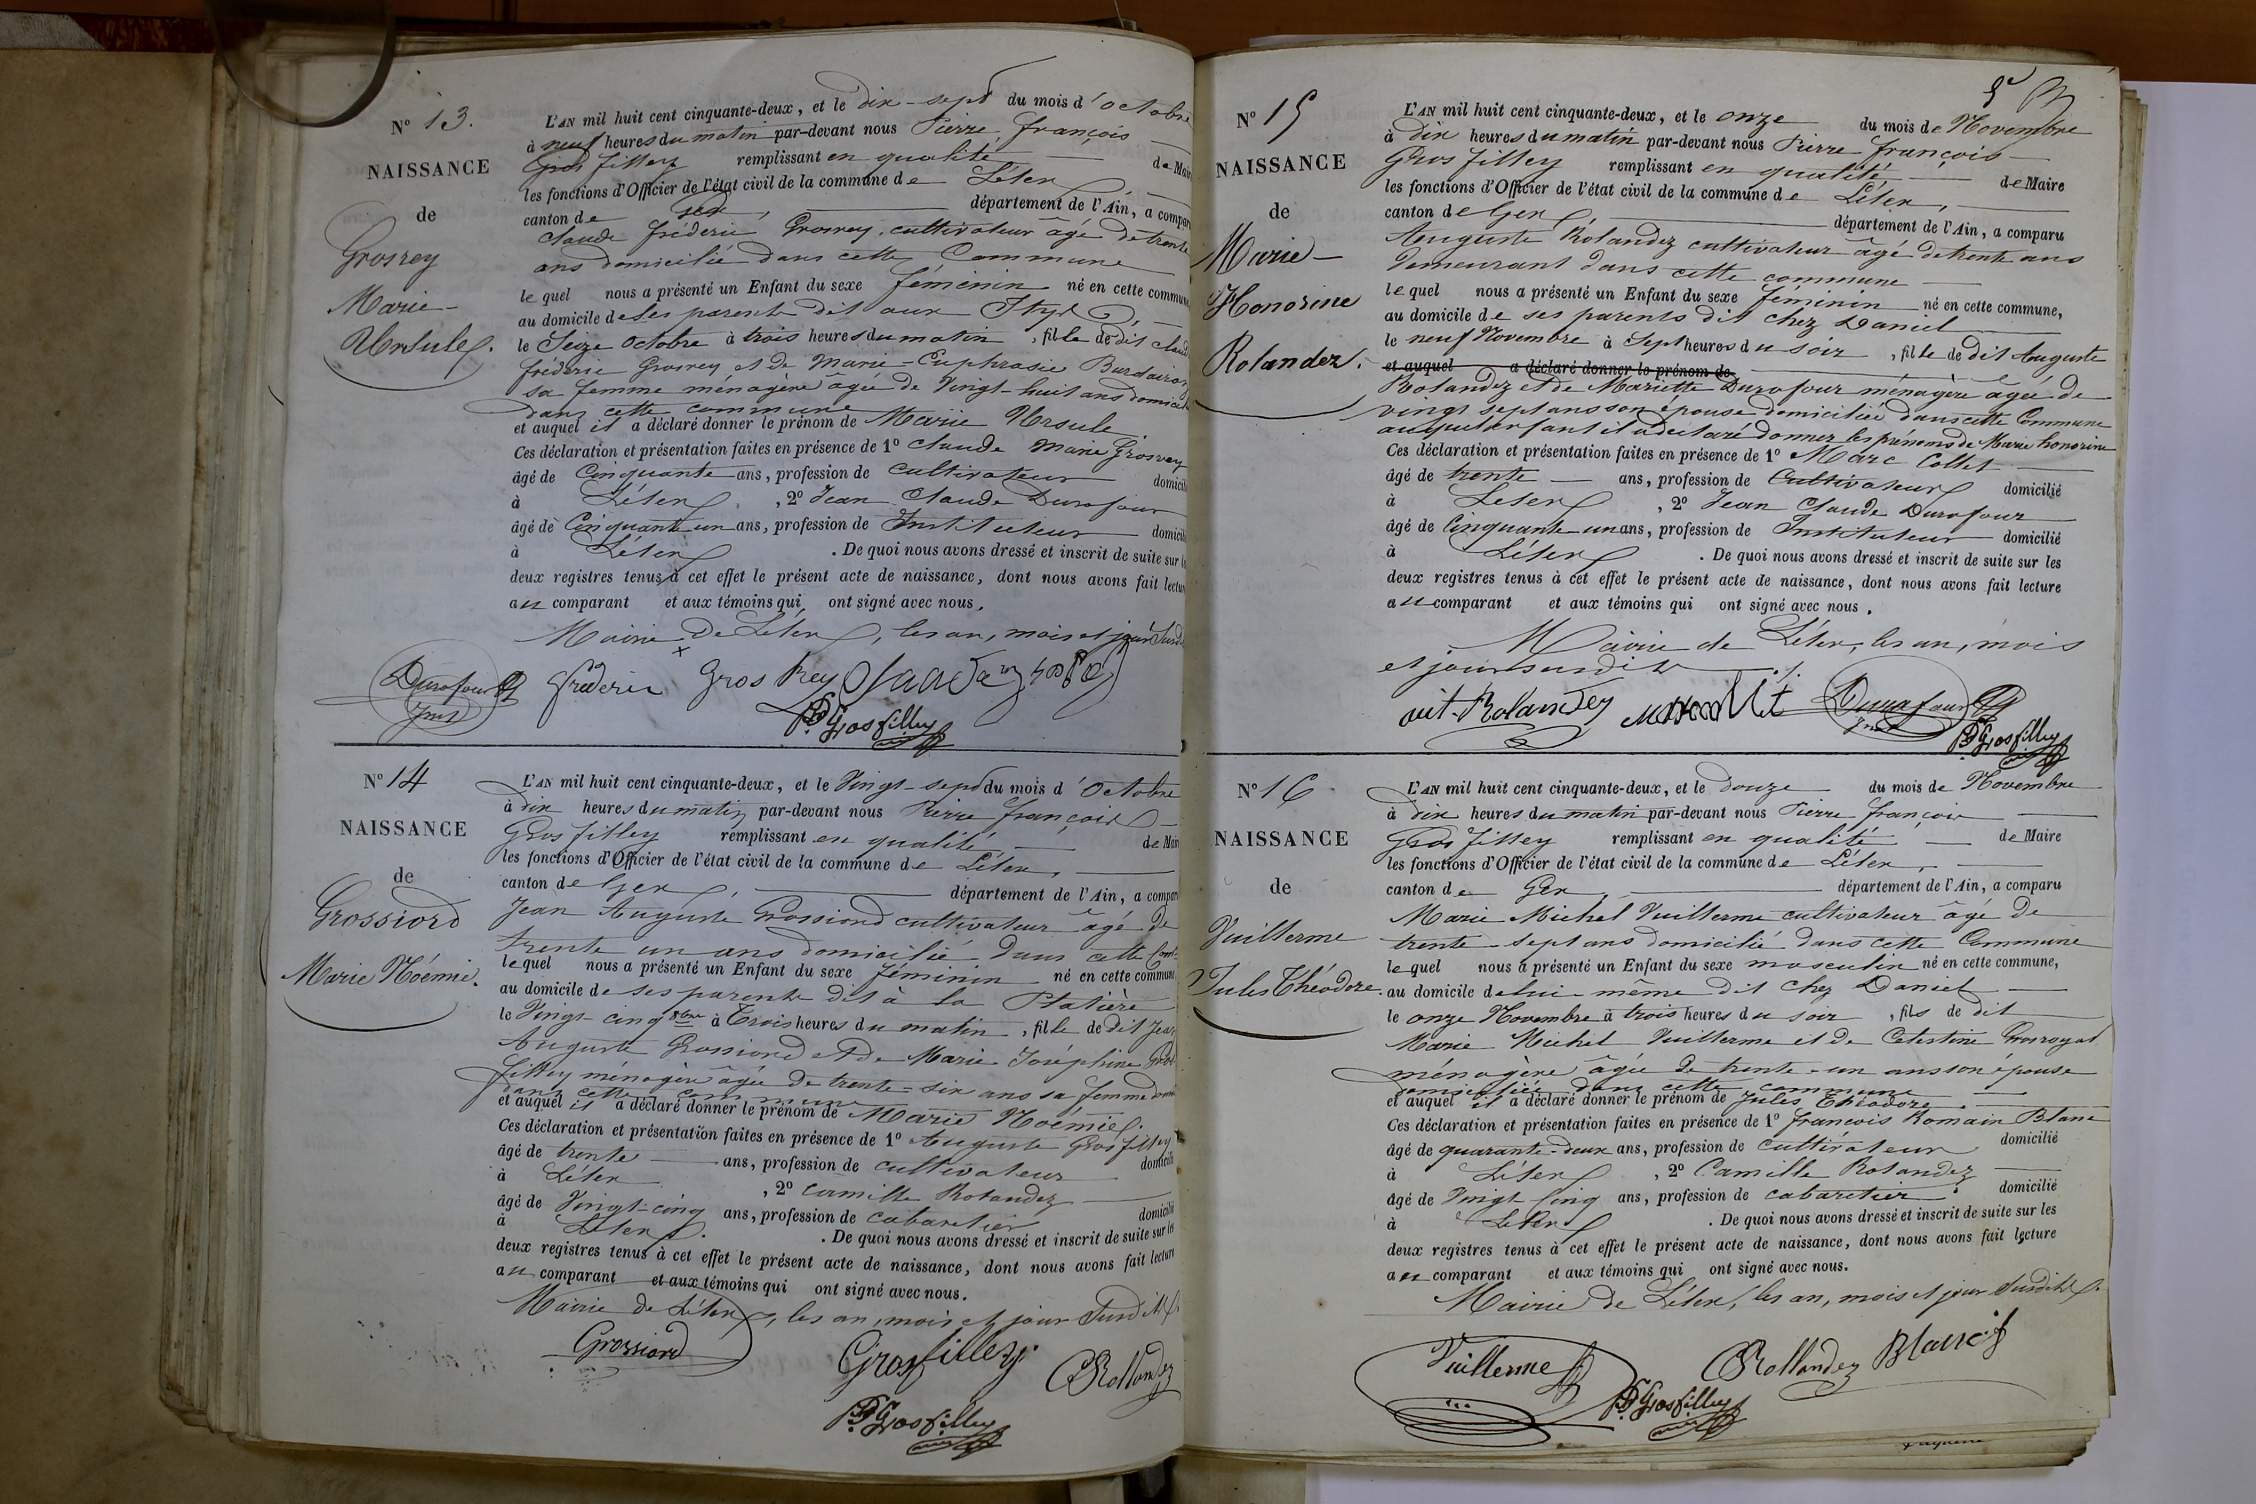 N° 13.
NAISSANCE
de
Grosrey
Marie
Ursule.
L'AN mil huit cent cinquante-deux, et le dix-sept du mois d'octobre
à neuf heures du matin par-devant nous Pierre françois
Gros filley remplissant en qualité de Maire
les fonctions d'Officier de l'état civil de la commune de Lélex
canton de Gex, département de l'Ain, a comparu
claude frédéric Grosrey, cultivateur âgé de trente
ans domicilié dans cette Commune
lequel nous a présenté un Enfant du sexe féminin né en cette commune
au domicile de ses parents dit aux
le Seize octobre à trois heures du matin, fille de dit claude
frédéric Grosrey et de Marie-Euphrasie
sa femme ménagère âgée de Vingt-huit ans domiciliée
dans cette commune
et auquel il a déclaré donner le prénom de Marie Ursule
Ces déclaration et présentation faites en présence de 1° claude marie Grosrey
âgé de Cinquante ans, profession de cultivateur domicilié
à Lélex, 2° Jean Claude Durafour
âgé de Cinquante un ans, profession de Instituteur domicilié
à Lélex. De quoi nous avons dressé et inscrit de suite sur les
deux registres tenus à cet effet le présent acte de naissance, dont nous avons fait lecture
au comparant et aux témoins qui ont signé avec nous.
Mairie de Lélex, les an, mois et jour Susdits
Durafour frédéric Gros Rey
Inst
Pf Grosfilley
N° 14
NAISSANCE
de
Grossiord
Marie Noémie.
L'AN mil huit cent cinquante-deux, et le Vingt-sept du mois d'octobre
à dix heures du matin par-devant nous Pierre françois
Gros filley remplissant en qualité de Maire
les fonctions d'Officier de l'état civil de la commune de Lélex,
canton de Gex, département de l'Ain, a comparu
Jean Auguste Grossiord cultivateur âgé de
trente un ans domicilié dans cette Com
lequel nous a présenté un Enfant du sexe féminin né en cette commune
au domicile de ses parents dit à la Platière
le Vingt-cinq 8bre à Trois heures du matin, fille de dit Jean
Auguste Grossiord et de Marie Joséphine Gros
filley ménagère âgée de trente-six ans sa femme domi
dans cette commune
et auquel il a déclaré donner le prénom de Marie Noémie.
Ces déclaration et présentation faites en présence de 1° Auguste Grosfilley
âgé de trente ans, profession de cultivateur domicilié
à Lélex, 2° camille Rolandez
âgé de Vingt-cinq ans, profession de cabaretier domicilié
à Lélex. De quoi nous avons dressé et inscrit de suite sur les
deux registres tenus à cet effet le présent acte de naissance, dont nous avons fait lecture
au comparant et aux témoins qui ont signé avec nous.
Mairie de Lélex, les an, mois et jour Susdits.
Grossiord Grosfilley CRollandez
Pf Grosfilley
N° 15
NAISSANCE
de
Marie
Honorine
Rolandez.
L'AN mil huit cent cinquante-deux, et le onze du mois de Novembre
à dix heures du matin par-devant nous Pierre françois
Gros filley remplissant en qualité de Maire
les fonctions d'Officier de l'état civil de la commune de Lélex,
canton de Gex, département de l'Ain, a comparu
Auguste Rolandez cultivateur âgé de trente ans
demeurant dans cette commune
lequel nous a présenté un Enfant du sexe féminin né en cette commune,
au domicile de ses parents dit chez Daniel
le neuf Novembre à Sept heures du soir, fille de dit Auguste
et auquel a déclaré donner le prénom de
Rolandez et de Mariette Durafour ménagère âgée de
vingt sept ans son épouse domiciliée dans cette Commune
auquel enfant il a déclaré donner les prénoms de Marie honorine
Ces déclaration et présentation faites en présence de 1° Marc Collet
âgé de trente ans, profession de Cultivateur domicilié
à Lelex, 2° Jean Claude Durafour
âgé de Cinquante un ans, profession de Instituteur domicilié
à Lélex. De quoi nous avons dressé et inscrit de suite sur les
deux registres tenus à cet effet le présent acte de naissance, dont nous avons fait lecture
au comparant et aux témoins qui ont signé avec nous.
Mairie de Lélex, les an, mois
et jour susdits
aut. Rolandez Durafour
Inst
Pf Grosfilley
N° 16
NAISSANCE
de
Vuillerme
Jules Théodore.
L'AN mil huit cent cinquante-deux, et le douze du mois de Novembre
à dix heures du matin par-devant nous Pierre françois
Gros filley remplissant en qualité de Maire
les fonctions d'Officier de l'état civil de la commune de Lélex,
canton de Gex, département de l'Ain, a comparu
Marie Michel Vuillerme cultivateur âgé de
trente-sept ans domicilié dans cette Commune
lequel nous a présenté un Enfant du sexe masculin né en cette commune,
au domicile de lui-même dit chez Daniel
le onze Novembre à trois heures du soir, fils de dit
Marie Michel Vuillerme et de Celestine Grosroyat
ménagère âgée de trente-un ans son épouse
domiciliée dans cette commune
et auquel il a déclaré donner le prénom de Jules Théodore.
Ces déclaration et présentation faites en présence de 1° francois Romain Blanc
âgé de quarante-deux ans, profession de cultivateur domicilié
à Lélex, 2° Camille Rolandez
âgé de Vingt Cinq ans, profession de cabaretier domicilié
à Lélex. De quoi nous avons dressé et inscrit de suite sur les
deux registres tenus à cet effet le présent acte de naissance, dont nous avons fait lecture
au comparant et aux témoins qui ont signé avec nous.
Mairie de Lélex, les an, mois et jour Susdits.
Vuillerme CRollandez Blanc f
Pf Grosfilley